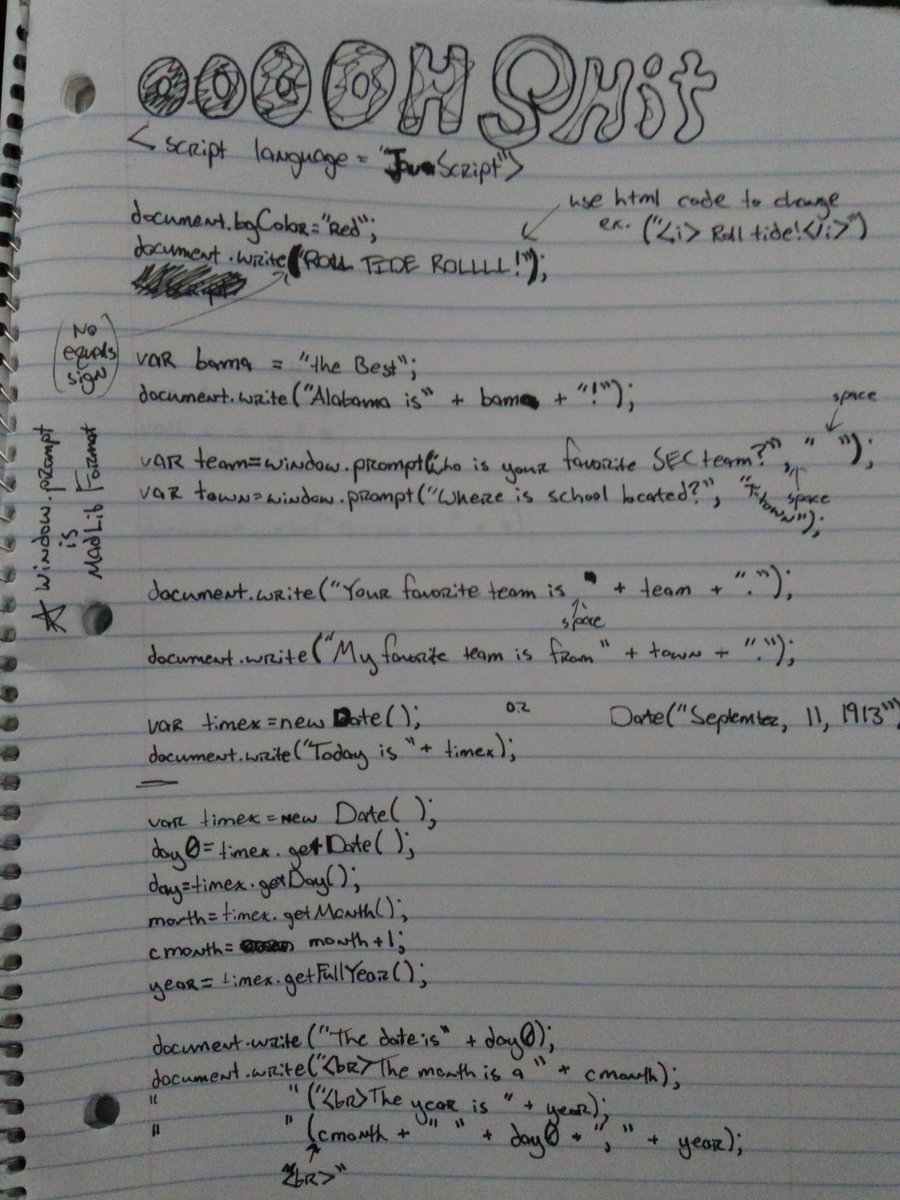 OOOOH SHit
<script language = "JavaScript">
use html code to change
document.bgColor="Red";
ex. ("<i> Roll tide!</i>")
document.write("ROLL TIDE ROLLLL!");
(No equals sign)
var bama = "the Best";
document.write("Alabama is" + bama + "!");
space
var team=window.prompt("Who is your favorite SEC team?", " ");
var town=window.prompt("Where is school located?", "T-town");
space
* window.prompt is MadLib Format
document.write("Your favorite team is " + team + ".");
space
document.write("My favorite team is from" + town + ".");
var timex=new Date(); or Date("September, 11, 1913")
document.write("Today is " + timex);
var timex=new Date( );
day0=timex.getDate( );
day=timex.getDay();
month=timex.getMonth();
cmonth= month+1;
year= timex.getFullYear();
document.write("The date is" + day0);
document.write("<br>The month is a " + cmonth);
" " ("<br>The year is " + year);
" " (cmonth + " " + day0 + ", " + year);
"<br>"